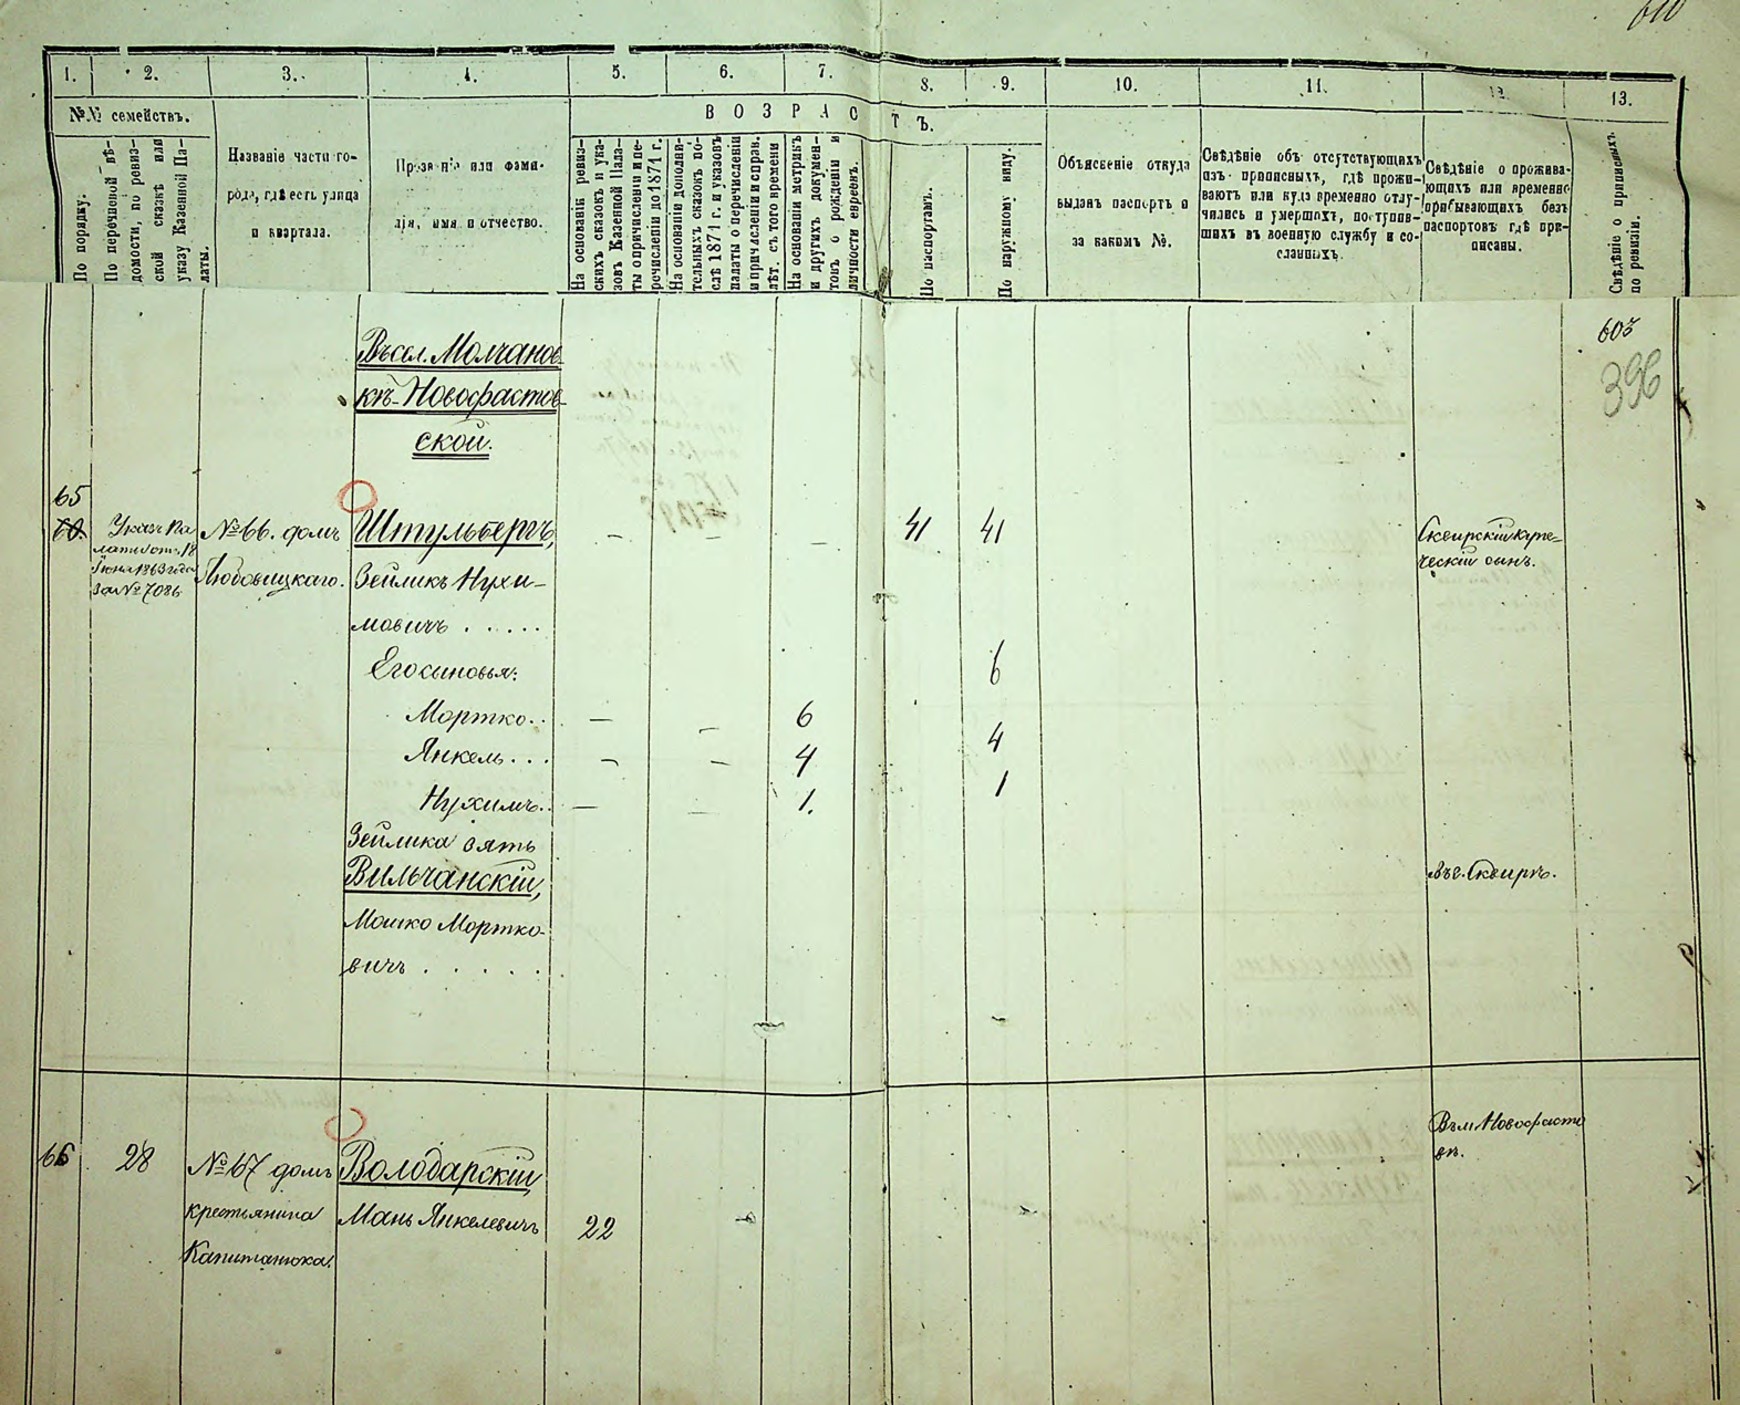 610
1. 2. 3. 4. 5. 6. 7. 8. 9. 10. 11. 12. 13.
№№ семействъ.
ВОЗРАСТЪ.
По порядку.
По перечневой вѣ-
домости, по ревиз-
ской сказкѣ или
указу Казенной Па-
латы.
Названіе части го-
рода, гдѣ есть улица
и квартала.
Прозваніе или фами-
лія, имя и отчество.
На основаніи ревиз-
скихъ сказокъ и ука-
зовъ Казенной Пала-
ты о причисленіи и пе-
речисленіи до 1871 г.
На основаніи дополни-
тельныхъ сказокъ по-
слѣ 1871 г. и указовъ
палаты о перечисленіи
и причисленіи и справ.
лѣт. съ того времени
На основаніи метрикъ
и другихъ докумен-
товъ о рожденіи и
личности евреевъ.
По паспортамъ.
По наружному виду.
Объясненіе откуда
выданъ паспортъ и
за какимъ №.
Свѣдѣніе объ отсутствующихъ
изъ приписныхъ, гдѣ прожи-
ваютъ или куда временно отлу-
чились и умершихъ, поступив-
шихъ въ военную службу и со-
сланныхъ.
Свѣдѣніе о прожива-
ющихъ или временно
прибывающихъ безъ
паспортовъ гдѣ при-
писаны.
Свѣдѣніе о приписныхъ
по ревизіи.
603
396
Въ сел. Молчанов-
кѣ-Новофастов-
ской.
65
Указъ Па
латы отъ 18
Іюня 1863 года
За № 7086
№ 66. домъ
Любовицкаго.
Штульбергъ,
Зейликъ Нухи-
мовичъ . . . . .
— — — 41 41
Сквирскій купе-
ческій сынъ.
Его сыновья:
Мортко. . — — 6 6
Янкель . . . — — 4 4
Нухимъ. . — — 1. 1
Зейлика зять
Вильчанскій,
Мошко Мортко-
вичъ . . . . .
въ г. Сквирѣ.
66 28
№ 67 домъ
крестьянина
Капитанюка.
Володарскій,
Мань Янкелевичъ 22
Въ м. Новофасто
вѣ.